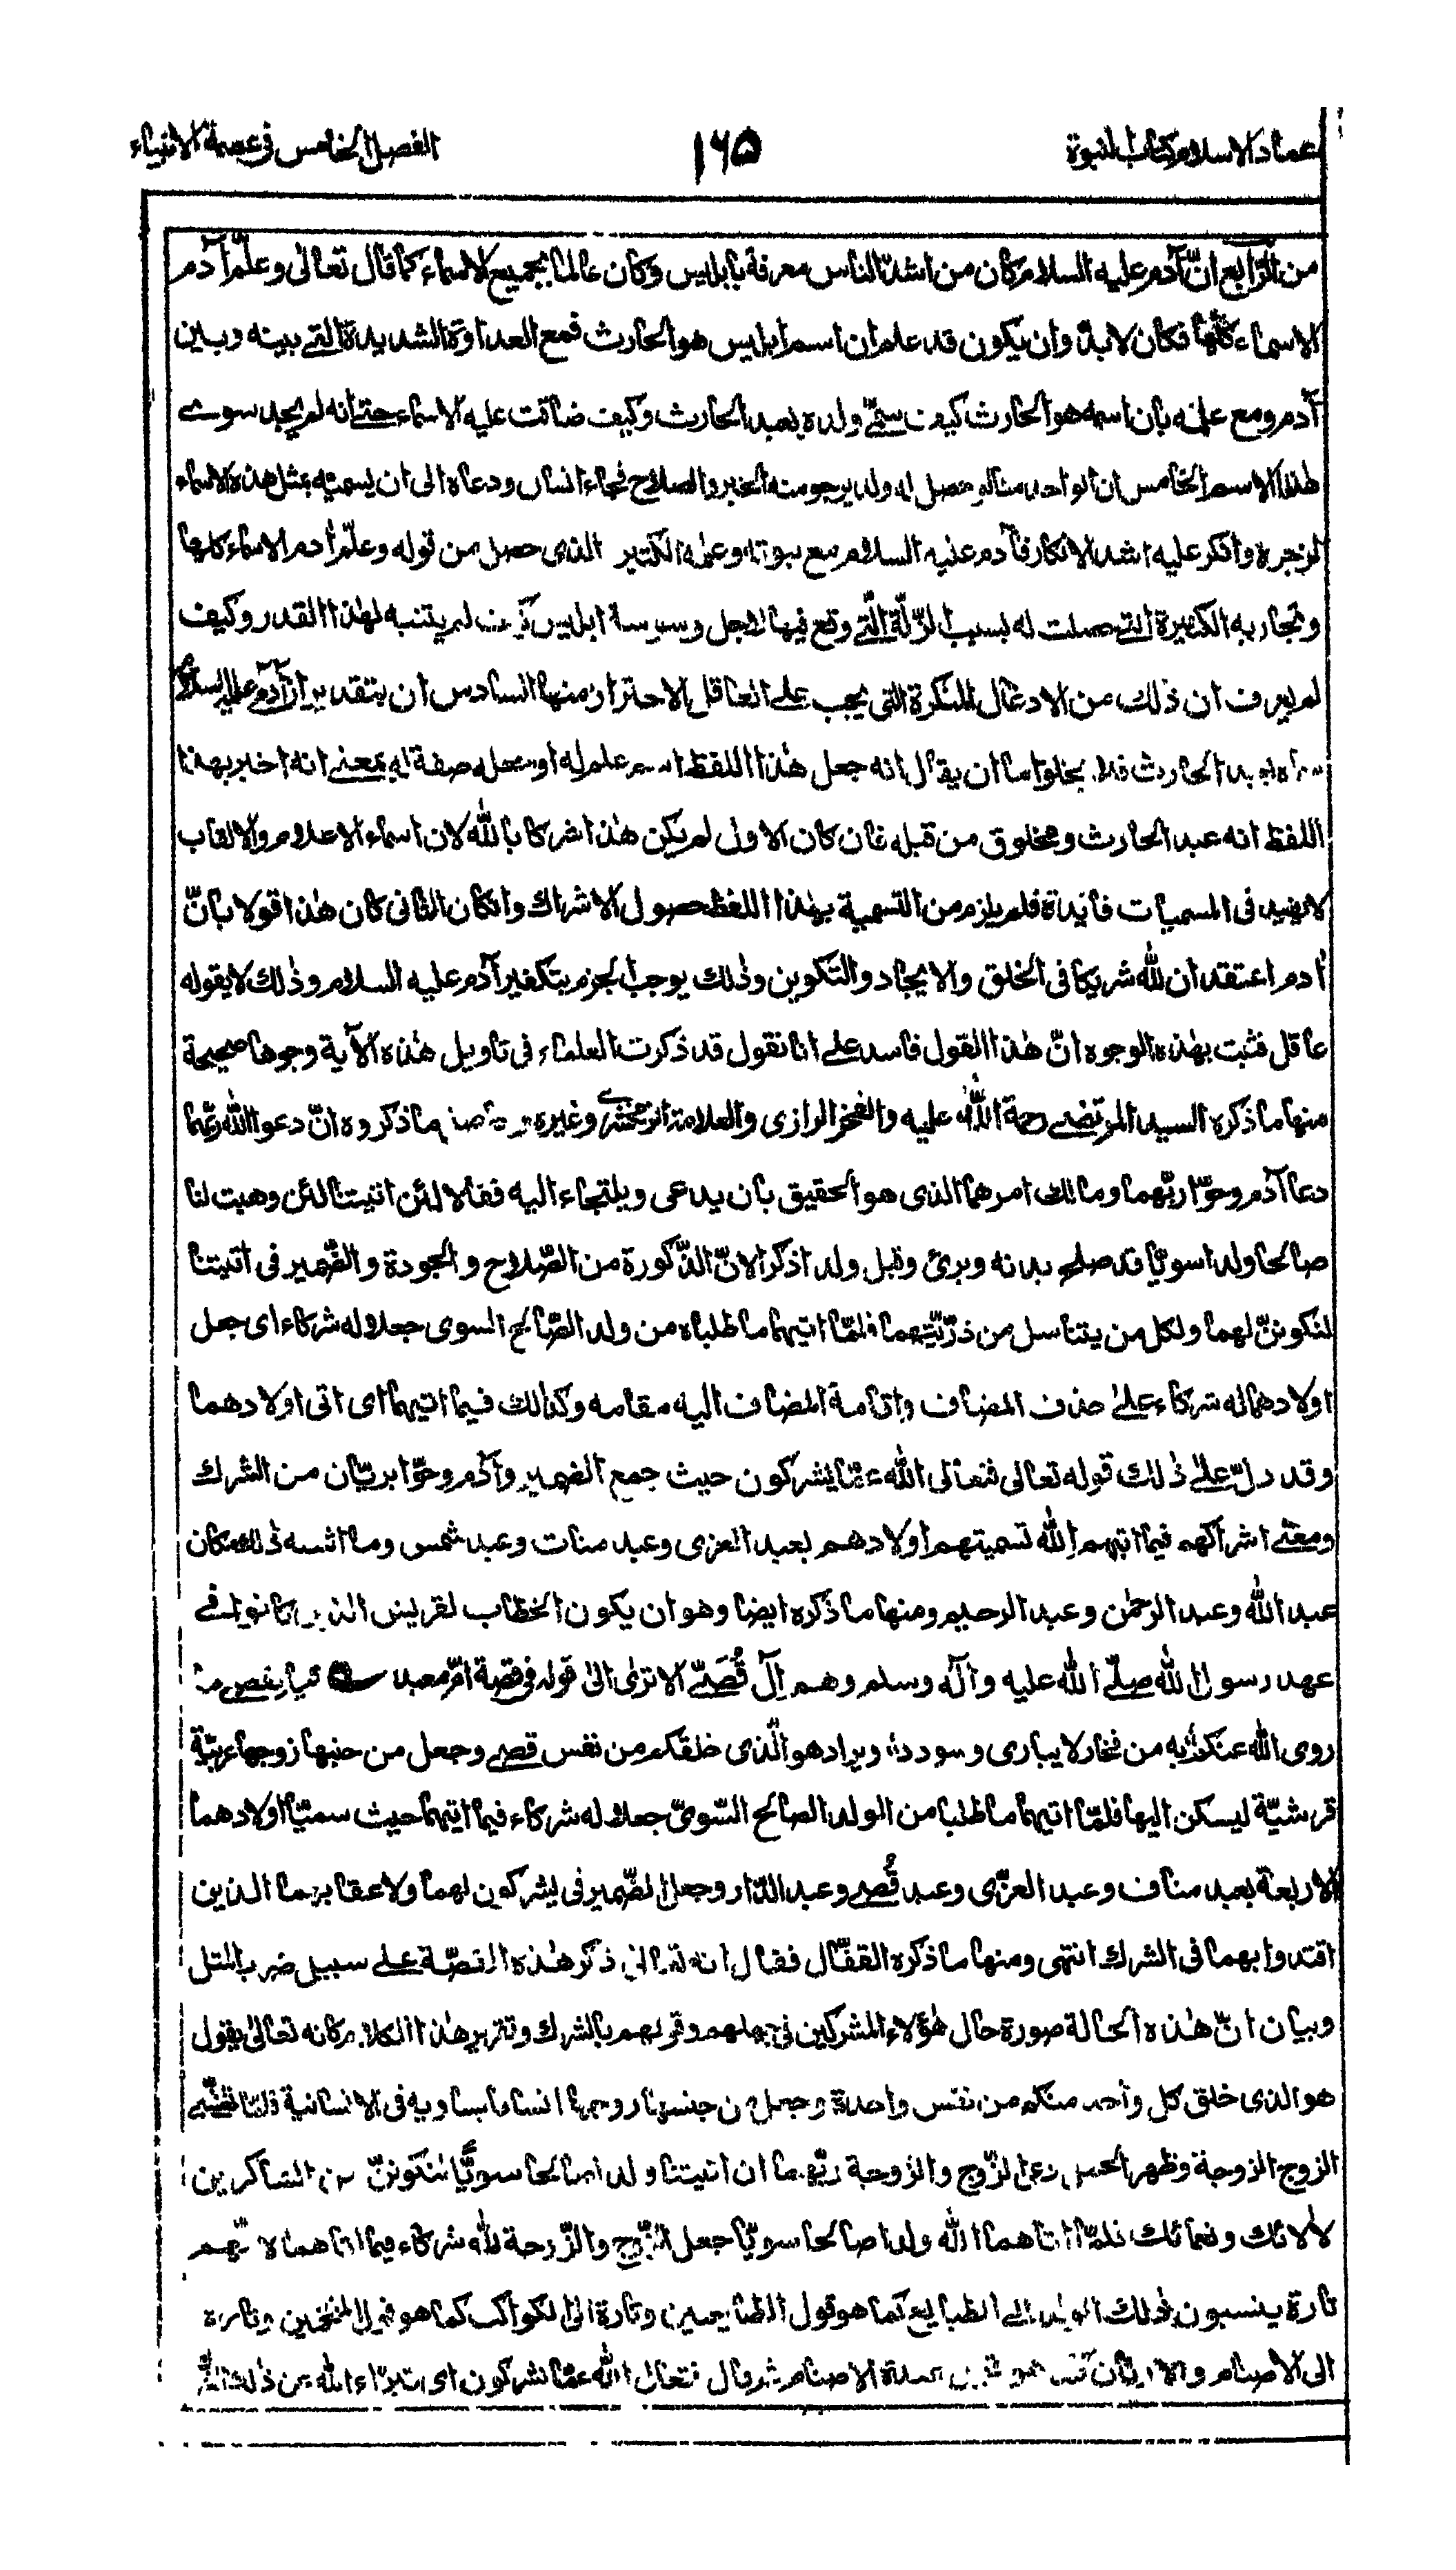 عماد الاسلام كتاب النبوة ۱۶۵ الفصل الخامس فى عصمة الانبياء
من الرّابع انّ آدم عليه السلام كان من اشدّ الناس معرفة بابليس وكان عالما بجميع الاسماء كما قال تعالى وعلّم آدم
الاسماء كلّها فكان لابدّ وان يكون قد علم ان اسم ابليس هو الحارث فمع العداوة الشديدة التے بينه وبين
آدم ومع علمه بان اسمه هو الحارث كيف سمّے ولده بعبد الحارث وكيف ضاقت عليه الاسماء حتے انه لم يجد سوے
هذا الاسم الخامس ان الواحد منا لو حصل له ولد يرجو منه الخير والصلاح فجاءه انسان ودعاه الى ان يسميه بمثل هذه الاسماء
لزجره وانكر عليه اشد الانكار فآدم عليه السلام مع نبوته وعلمه الكثير الذى حصل من قوله وعلّم آدم الاسماء كلها
وتجاربه الكثيرة التے حصلت له بسبب الزلّة الّتے وقع فيها لاجل وسوسة ابليس كيف لم يتنبه لهذا القدر وكيف
لم يعرف ان ذلك من الافعال المنكرة التى يجب علے العاقل الاحتراز منها السادس ان بتقدير انّ آدم عليه السلام
سماه بعبد الحارث فلا يخلو اما ان يقال انه جعل هذا اللفظ اسم علم له او جعله صفة له بمعنے انه اخبر بهذا
اللفظ انه عبد الحارث ومخلوق من قبله فان كان الاول لم يكن هذا شركا بالله لان اسماء الاعلام والالقاب
لا يفيد فى المسميات فائدة فلم يلزم من التسمية بهذا اللفظ حصول الاشراك وان كان الثانى كان هذا قولا بانّ
آدم اعتقد ان لله شريكا فى الخلق والايجاد والتكوين وذلك يوجب الجزم بتكفير آدم عليه السلام وذلك لا يقوله
عاقل فثبت بهذه الوجوه انّ هذا القول فاسد علے انا نقول قد ذكرت العلماء فى تاويل هذه الآية وجوها صحيحة
منها ما ذكره السيد المرتضے رحمة الله عليه والفخر الرازى والعلامة الزمخشرے وغيره ما ذكروه انّ دعوا الله ربّهما
دعا آدم وحوّا ربّهما ومالك امرهما الذى هو الحقيق بان يدعى ويلتجاء اليه فقالا لئن اتيتنا لئن وهبت لنا
صالحا ولدا سويّا قد صلح بدنه وبرئ وقيل ولدا ذكرا لانّ الذّكورة من الصّلاح والجودة والضّمير فى اتيتنا
لنكوننّ لهما ولكل من يتناسل من ذرّيّتهما فلمّا اتيهما ما طلباه من ولد الصّالح السوى جعلا له شركاء اى جعل
اولادهما له شركاء علےٰ حذف المضاف واقامة المضاف اليه مقامه وكذلك فيما اتيهما اى اتى اولادهما
وقد دلّ علےٰ ذلك قوله تعالى فتعالى الله عمّا يشركون حيث جمع الضمير وآدم وحوّا بريّان من الشرك
ومعنے اشراكهم فيما اتيهم الله تسميتهم اولادهم بعبد العزى وعبد مناة وعبد شمس وما اشبه ذلك مكان
عبد الله وعبد الرحمٰن وعبد الرحيم ومنها ما ذكره ايضا وهو ان يكون الخطاب لقريش الذين كانوا فے
عهد رسول الله صلّے الله عليه وآله وسلم وهم آل قُصَىّ الا ترى الى قوله فى قصة امّ معبد فيا لقصى ما
روى الله عنكم به من فخار لا يبارى وسودد ويراد هو الّذى خلقكم من نفس قصے وجعل من جنبها زوجها عربيّة
قرشيّة ليسكن اليها فلمّا اتيهما ما طلبا من الولد الصالح السّوىّ جعلا له شركاء فيما اتيهما حيث سميّا اولادهما
الاربعة بعبد مناف وعبد العزّى وعبد قُصے وعبد الدّار وجعل الضّمير فى يشركون لهما ولاعقابهما الذين
اقتدوا بهما فى الشرك انتهى ومنها ما ذكره القفّال فقال انه تعالى ذكر هذه القصّة علے سبيل ضرب المثل
وبيان انّ هذه الحالة صورة حال هؤلاء المشركين فى جهلهم وقولهم بالشرك وتقرير هذا الكلام كانه تعالىٰ يقول
هو الذى خلق كل واحد منكم من نفس واحدة وجعل من جنسها زوجها انسانا يساويه فى الانسانية فلمّا تغشّے
الزوج الزوجة وظهر الحمل دعا الزّوج والزّوجة ربّهما ان اتيتنا ولدا صالحا سويًّا لنكوننّ من الشاكرين
لآلائك ونعمائك فلمّا اتاهما الله ولدا صالحا سويّا جعل الزّوج والزّوجة لله شركاء فيما اتاهما لانّهم
تارة ينسبون ذلك الولد الى الطبايع كما هو قول الطبايعيين وتارة الى الكواكب كما هو قول المنجّمين وتارة
الى الاصنام والاوثان كما هو قول عبدة الاصنام ثم قال فتعالى الله عمّا يشركون اى تبرّاء الله عن ذلك